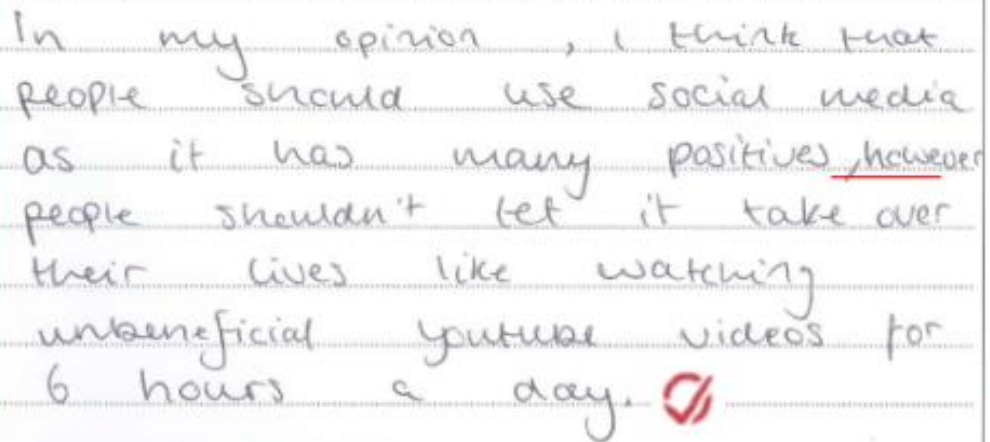 In my opinion , i think that
people should use social media
as it has many positives, however
people shouldn't let it take over
their lives like watching
unbeneficial youtube videos for
6 hours a day.